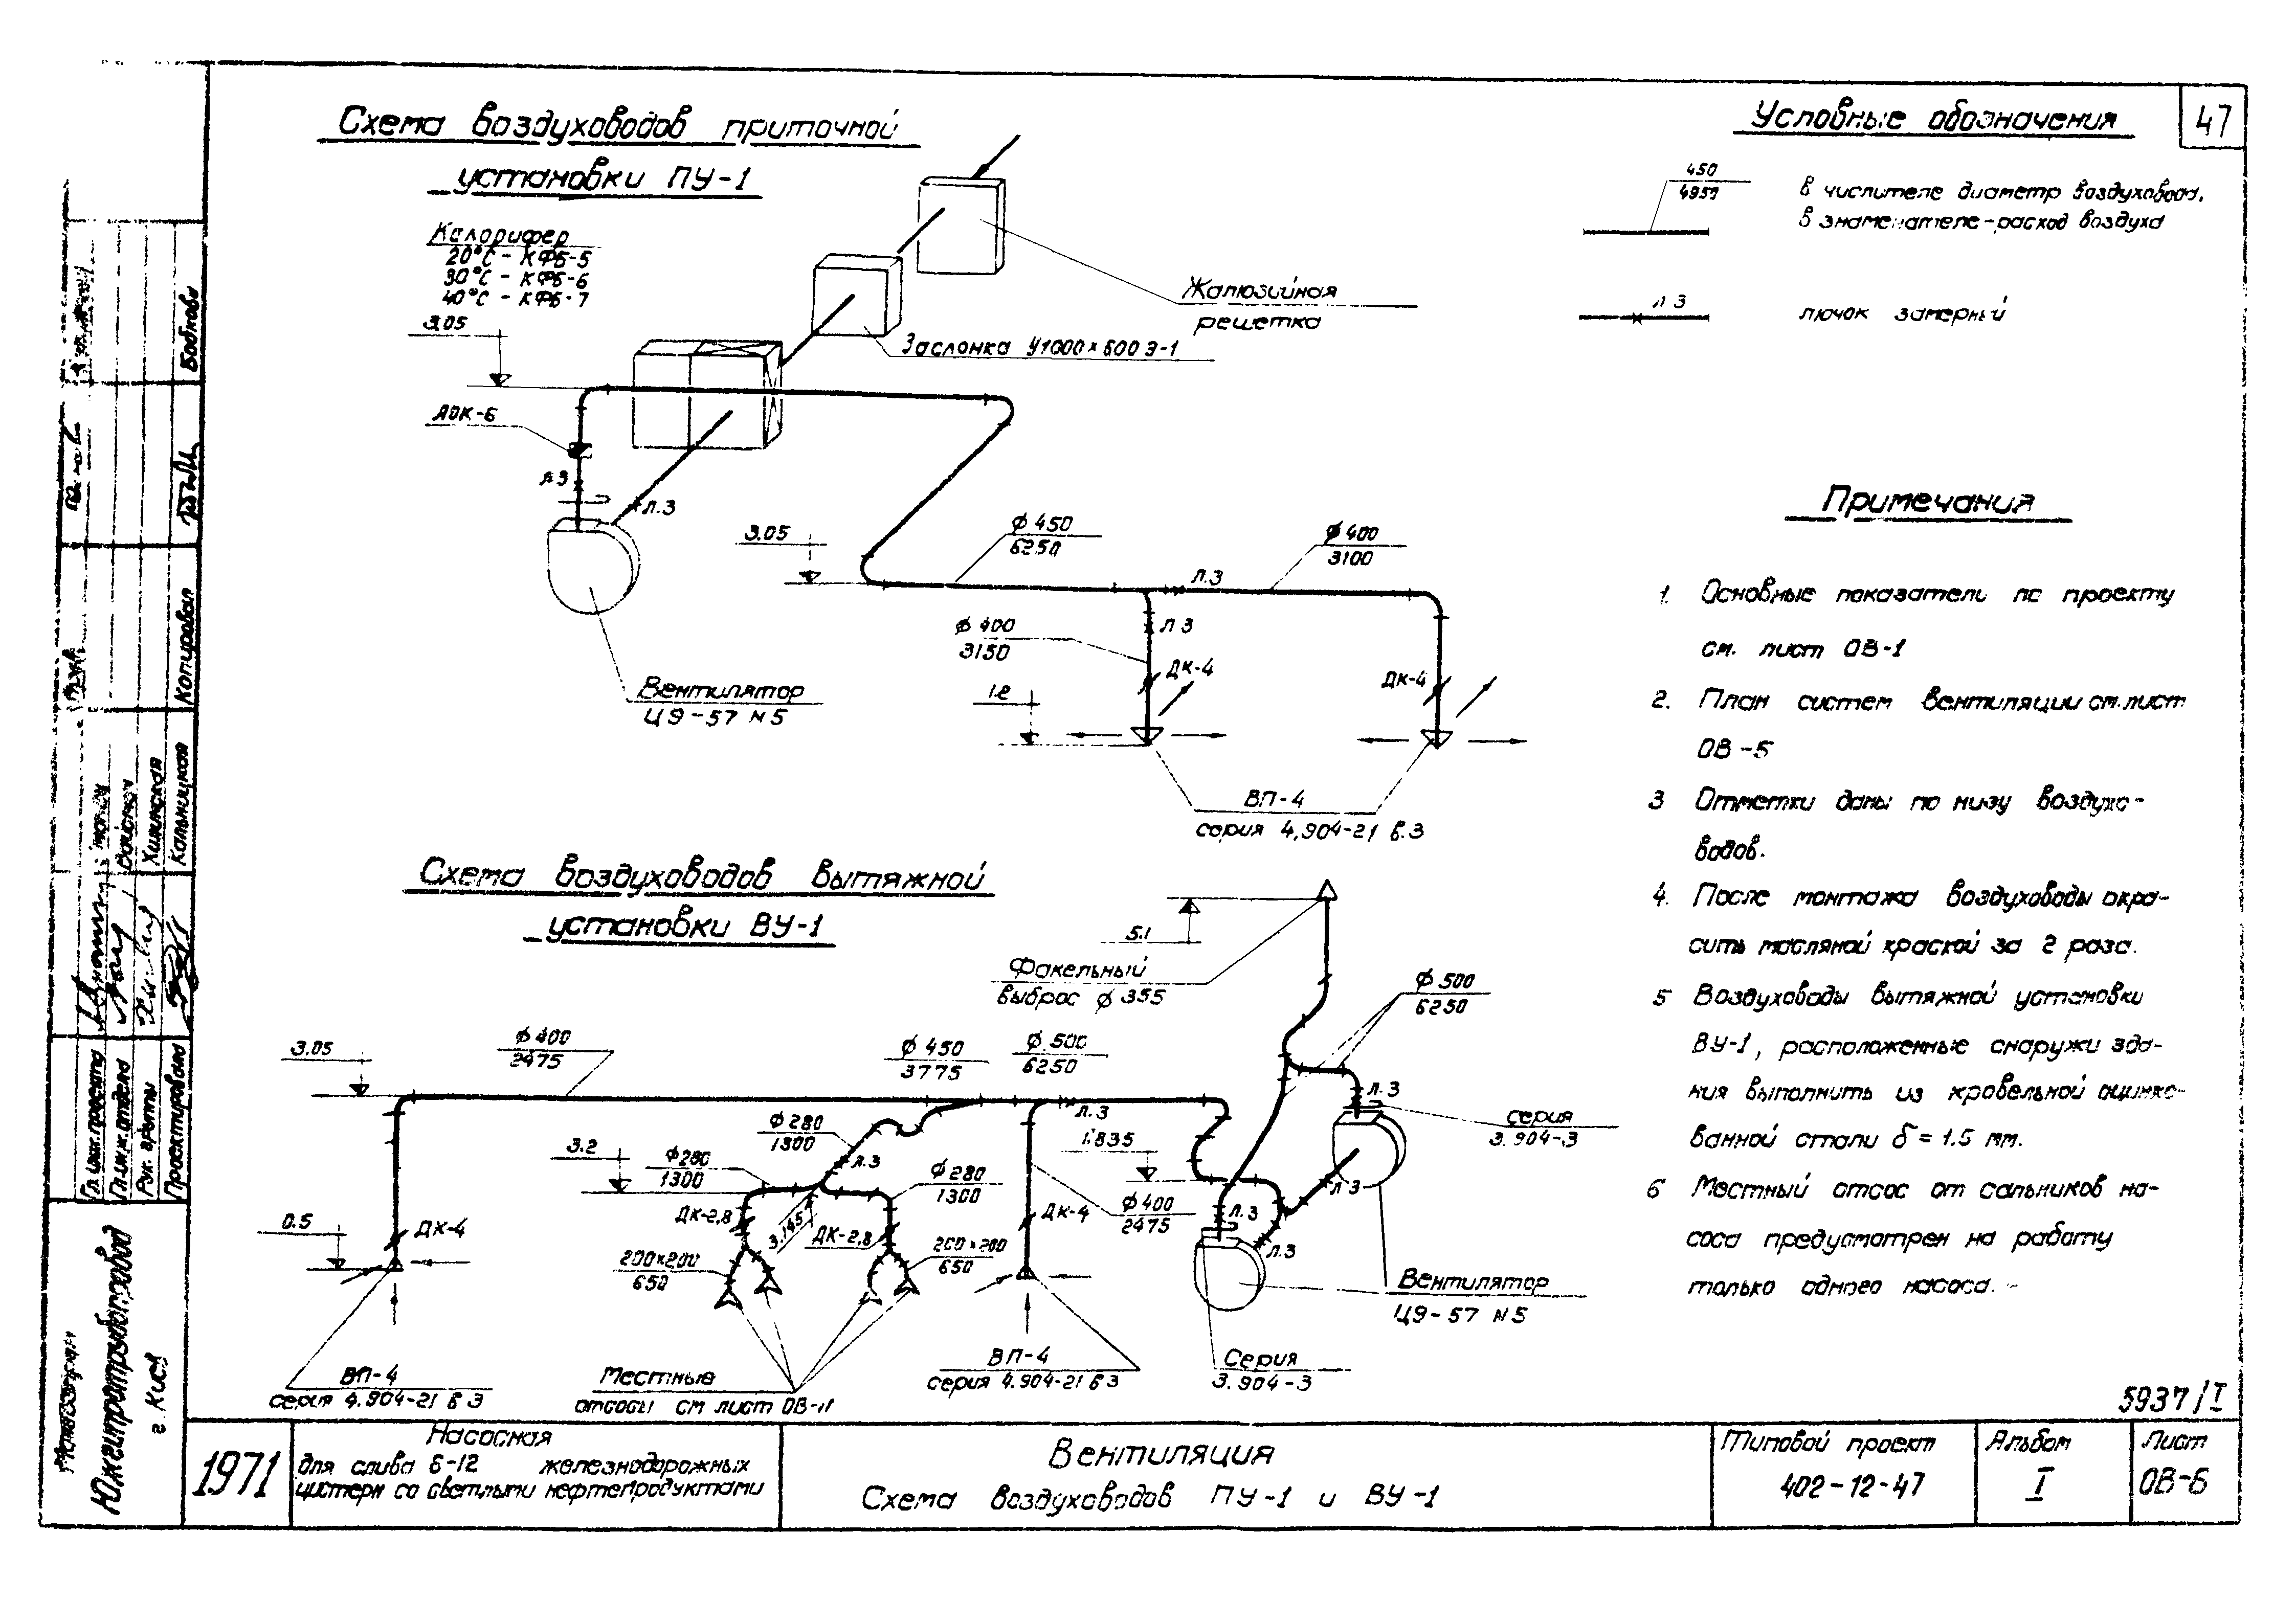 47
Схема воздуховодов приточной
установки ПУ-1
Калорифер
20°С - КФБ-5
30°С - КФБ-6
40°С - КФБ-7
3.05
АОК-6
Л.З
Л.З
Вентилятор
Ц9-57 №5
Жалюзийная
решетка
Заслонка У1000×600 Э-1
3.05
ф 450
6250
Л.З
ф 400
3100
ф 400
3150
Л З
ДК-4
ДК-4
1.2
ВП-4
серия 4.904-21 в.3
Условные обозначения
450
4950
В числителе диаметр воздуховода,
В знаменателе-расход воздуха
Л З
лючок замерный
Примечания
1. Основные показатели по проекту
см. лист ОВ-1
2. План систем вентиляции см. лист
ОВ-5
3 Отметки даны по низу воздухо-
водов.
4. После монтажа воздуховоды окра-
сить масляной краской за 2 раза.
5 Воздуховоды вытяжной установки
ВУ-1, расположенные снаружи зда-
ния выполнить из кровельной оцинко-
ванной стали δ = 1.5 мм.
6 Местный отсос от сальников на-
соса предусмотрен на работу
только одного насоса.
Схема воздуховодов вытяжной
установки ВУ-1
5.1
Факельный
выброс ф 355
ф 500
6250
3.05
ф 400
2475
ф 450
3775
ф 500
6250
Л.З
1.835
ф 280
1300
Л.З
3.2
ф 280
1300
ф 280
1300
ДК-2,8
3.145
ДК-2,8
200×200
650
200×200
650
0.5
ДК-4
ДК-4
ф 400
2475
Л.З
серия
3.904-3
Л З
Л.З
Л.З
Вентилятор
Ц9-57 №5
Серия
3.904-3
ВП-4
серия 4.904-21 в 3
Местные
отсосы см лист ОВ-11
ВП-4
серия 4.904-21 в 3
5937/I
1971
Насосная
для слива 6-12 железнодорожных
цистерн со светлыми нефтепродуктами
Вентиляция
Схема воздуховодов ПУ-1 и ВУ-1
Типовой проект
402-12-47
Альбом
I
Лист
ОВ-6
Южгипротрубопровод
г. Киев
Гл. инж. проекта
Гл. инж. отдела
Рук. группы
Проектировала
Хилинская
Кальницкая
Копировал
Бобкова